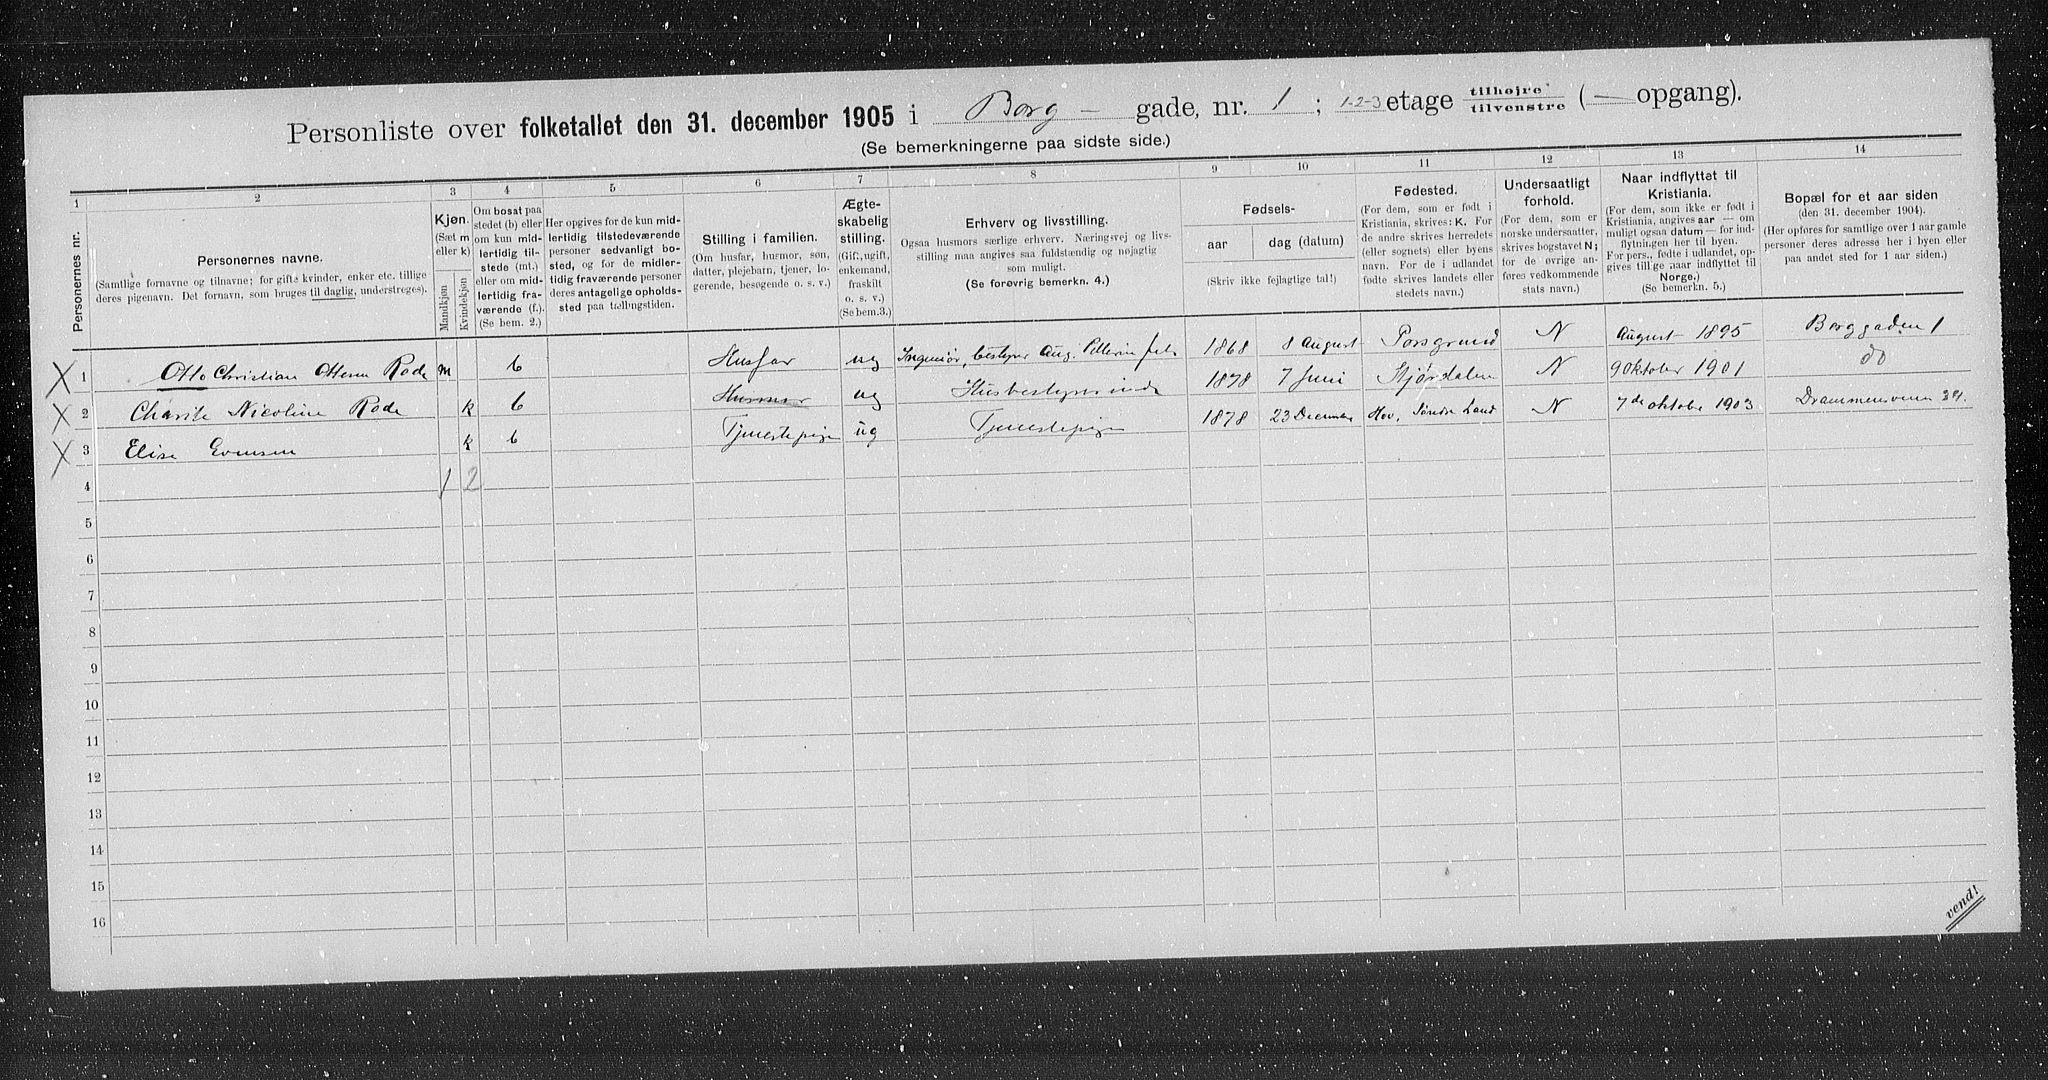 Personliste over folketallet den 31. december 1905 i Borg - gade, nr. 1 ; 1-2-3 etage tilhøjre tilvenstre ( — opgang).
(Se bemerkningerne paa sidste side.)
1 2 3 4 5 6 7 8 9 10 11 12 13 14
Personernes nr.
Personernes navne.
(Samtlige fornavne og tilnavne; for gifte kvinder, enker etc. tillige
deres pigenavn. Det fornavn, som bruges til daglig, understreges).
Kjøn.
(Sæt m
eller k)
Mandkjøn
Kvindekjøn
Om bosat paa
stedet (b) eller
om kun mid-
lertidig til-
stede (mt.)
eller om mid-
lertidig fra-
værende (f.).
(Se bem. 2.)
Her opgives for de kun mid-
lertidig tilstedeværende
personer sedvanligt bo-
sted, og for de midler-
tidig fraværende personer
deres antagelige opholds-
sted paa tællingstiden.
Stilling i familien.
(Om husfar, husmor, søn,
datter, plejebarn, tjener, lo-
gerende, besøgende o. s. v.)
Ægte-
skabelig
stilling.
(Gift, ugift,
enkemand,
fraskilt
o. s. v.)
(Se bem.3.)
Erhverv og livsstilling.
Ogsaa husmors særlige erhverv. Næringsvej og livs-
stilling maa angives saa fuldstændig og nøjagtig
som muligt.
(Se forøvrig bemerkn. 4.)
Fødsels-
aar
dag (datum)
(Skriv ikke fejlagtige tal!)
Fødested.
(For dem, som er født i
Kristiania, skrives: K. For
de andre skrives herredets
(eller sognets) eller byens
navn. For de i udlandet
fødte skrives landets eller
stedets navn.)
Undersaatligt
forhold.
(For dem, som er
norske undersaatter,
skrives bogstavet N;
for de øvrige an-
føres vedkommende
stats navn.)
Naar indflyttet til
Kristiania.
(For dem, som ikke er født i
Kristiania, angives aar — om
muligt ogsaa datum — for ind-
flytningen her til byen.
For pers., fødte i udlandet, op-
gives tillige naar indflyttet til
Norge.)
(Se bemerkn. 5.)
Bopæl for et aar siden
(den 31. december 1904).
(Her opføres for samtlige over 1 aar gamle
personer deres adresse her i byen eller
paa andet sted for 1 aar siden.)
X 1 Otto Christian Ottesen Rode m b Husfar ug Ingeniør, bestyrer Aug. Pellerin fils 1868 8 August Porsgrund N August 1895 Borggaden 1
X 2 Nicoline Rode k b Husmor ug Husbestyrerinde 1878 7 Juni Stjørdalen N 9 Oktober 1901 do
X 3 Elise Evensen k b Tjenestepige ug Tjenestepige 1878 23 December Hov, Søndre Land N 7de oktober 1903 Drammensveien
4 1 2
5
6
7
8
9
10
11
12
13
14
15
16
vend!